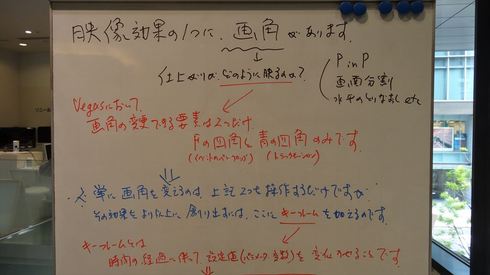 映像効果の1つに、画角があります。
仕上がりがどのように映るのか?
PinP
画面分割
水平のとりなおし etc
Vegasにおいて、
画角の変更できる要素は2つだけ
Fの四角と青の四角のみです。
(イベントのパン/クロップ) (トラックモーション)
単に画角を変えるのは、上記2つを操作するだけですが、
その効果をより以上に創り出すには、ここにキーフレームを加えるのです。
キーフレームとは
時間の経過に伴って設定値(パラメータ・変数)を変化させることです。